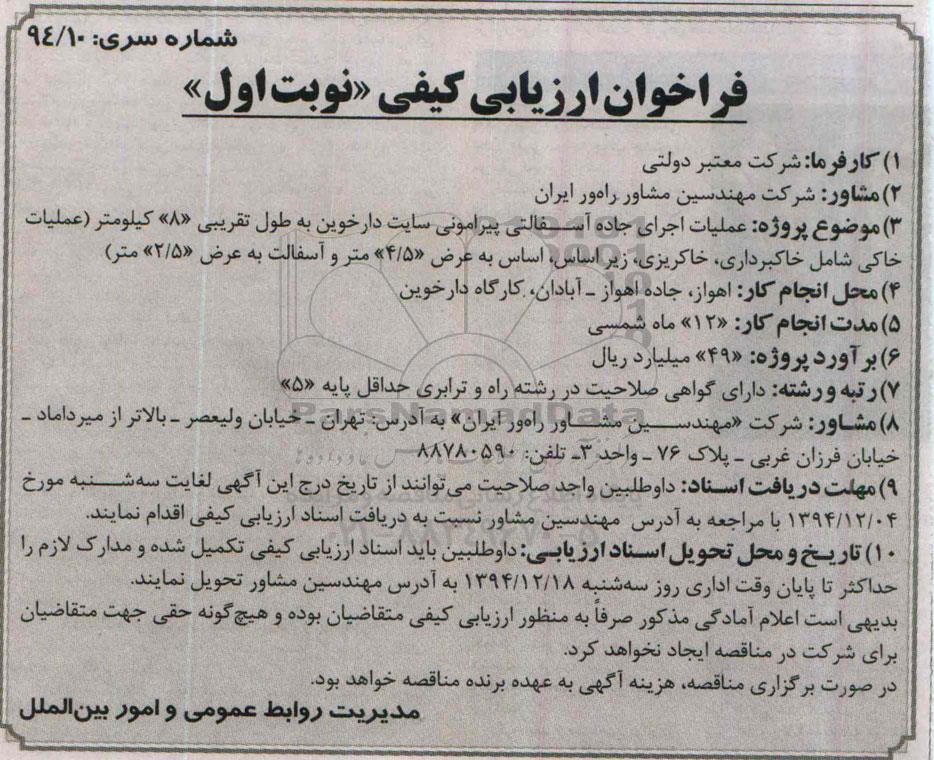 شماره سری: ۹۴/۱۰
فراخوان ارزیابی کیفی «نوبت اول»
۱) کارفرما: شرکت معتبر دولتی
۲) مشاور: شرکت مهندسین مشاور راه‌ور ایران
۳) موضوع پروژه: عملیات اجرای جاده آسفالتی پیرامونی سایت دارخوین به طول تقریبی «۸» کیلومتر (عملیات
خاکی شامل خاکبرداری، خاکریزی، زیر اساس، اساس به عرض «۴/۵» متر و آسفالت به عرض «۲/۵» متر)
۴) محل انجام کار: اهواز، جاده اهواز ـ آبادان، کارگاه دارخوین
۵) مدت انجام کار: «۱۲» ماه شمسی
۶) برآورد پروژه: «۴۹» میلیارد ریال
۷) رتبه و رشته: دارای گواهی صلاحیت در رشته راه و ترابری حداقل پایه «۵»
ParsNamadData
۸) مشاور: شرکت «مهندسین مشاور راه‌ور ایران» به آدرس: تهران ـ خیابان ولیعصر ـ بالاتر از میرداماد ـ
خیابان فرزان غربی ـ پلاک ۷۶ ـ واحد ۳ـ تلفن: ۸۸۷۸۰۵۹۰
۹) مهلت دریافت اسناد: داوطلبین واجد صلاحیت می‌توانند از تاریخ درج این آگهی لغایت سه‌شنبه مورخ
۱۳۹۴/۱۲/۰۴ با مراجعه به آدرس مهندسین مشاور نسبت به دریافت اسناد ارزیابی کیفی اقدام نمایند.
۱۰) تاریخ و محل تحویل اسناد ارزیابی: داوطلبین باید اسناد ارزیابی کیفی تکمیل شده و مدارک لازم را
حداکثر تا پایان وقت اداری روز سه‌شنبه ۱۳۹۴/۱۲/۱۸ به آدرس مهندسین مشاور تحویل نمایند.
بدیهی است اعلام آمادگی مذکور صرفاً به منظور ارزیابی کیفی متقاضیان بوده و هیچ‌گونه حقی جهت متقاضیان
برای شرکت در مناقصه ایجاد نخواهد کرد.
در صورت برگزاری مناقصه، هزینه آگهی به عهده برنده مناقصه خواهد بود.
مدیریت روابط عمومی و امور بین‌الملل